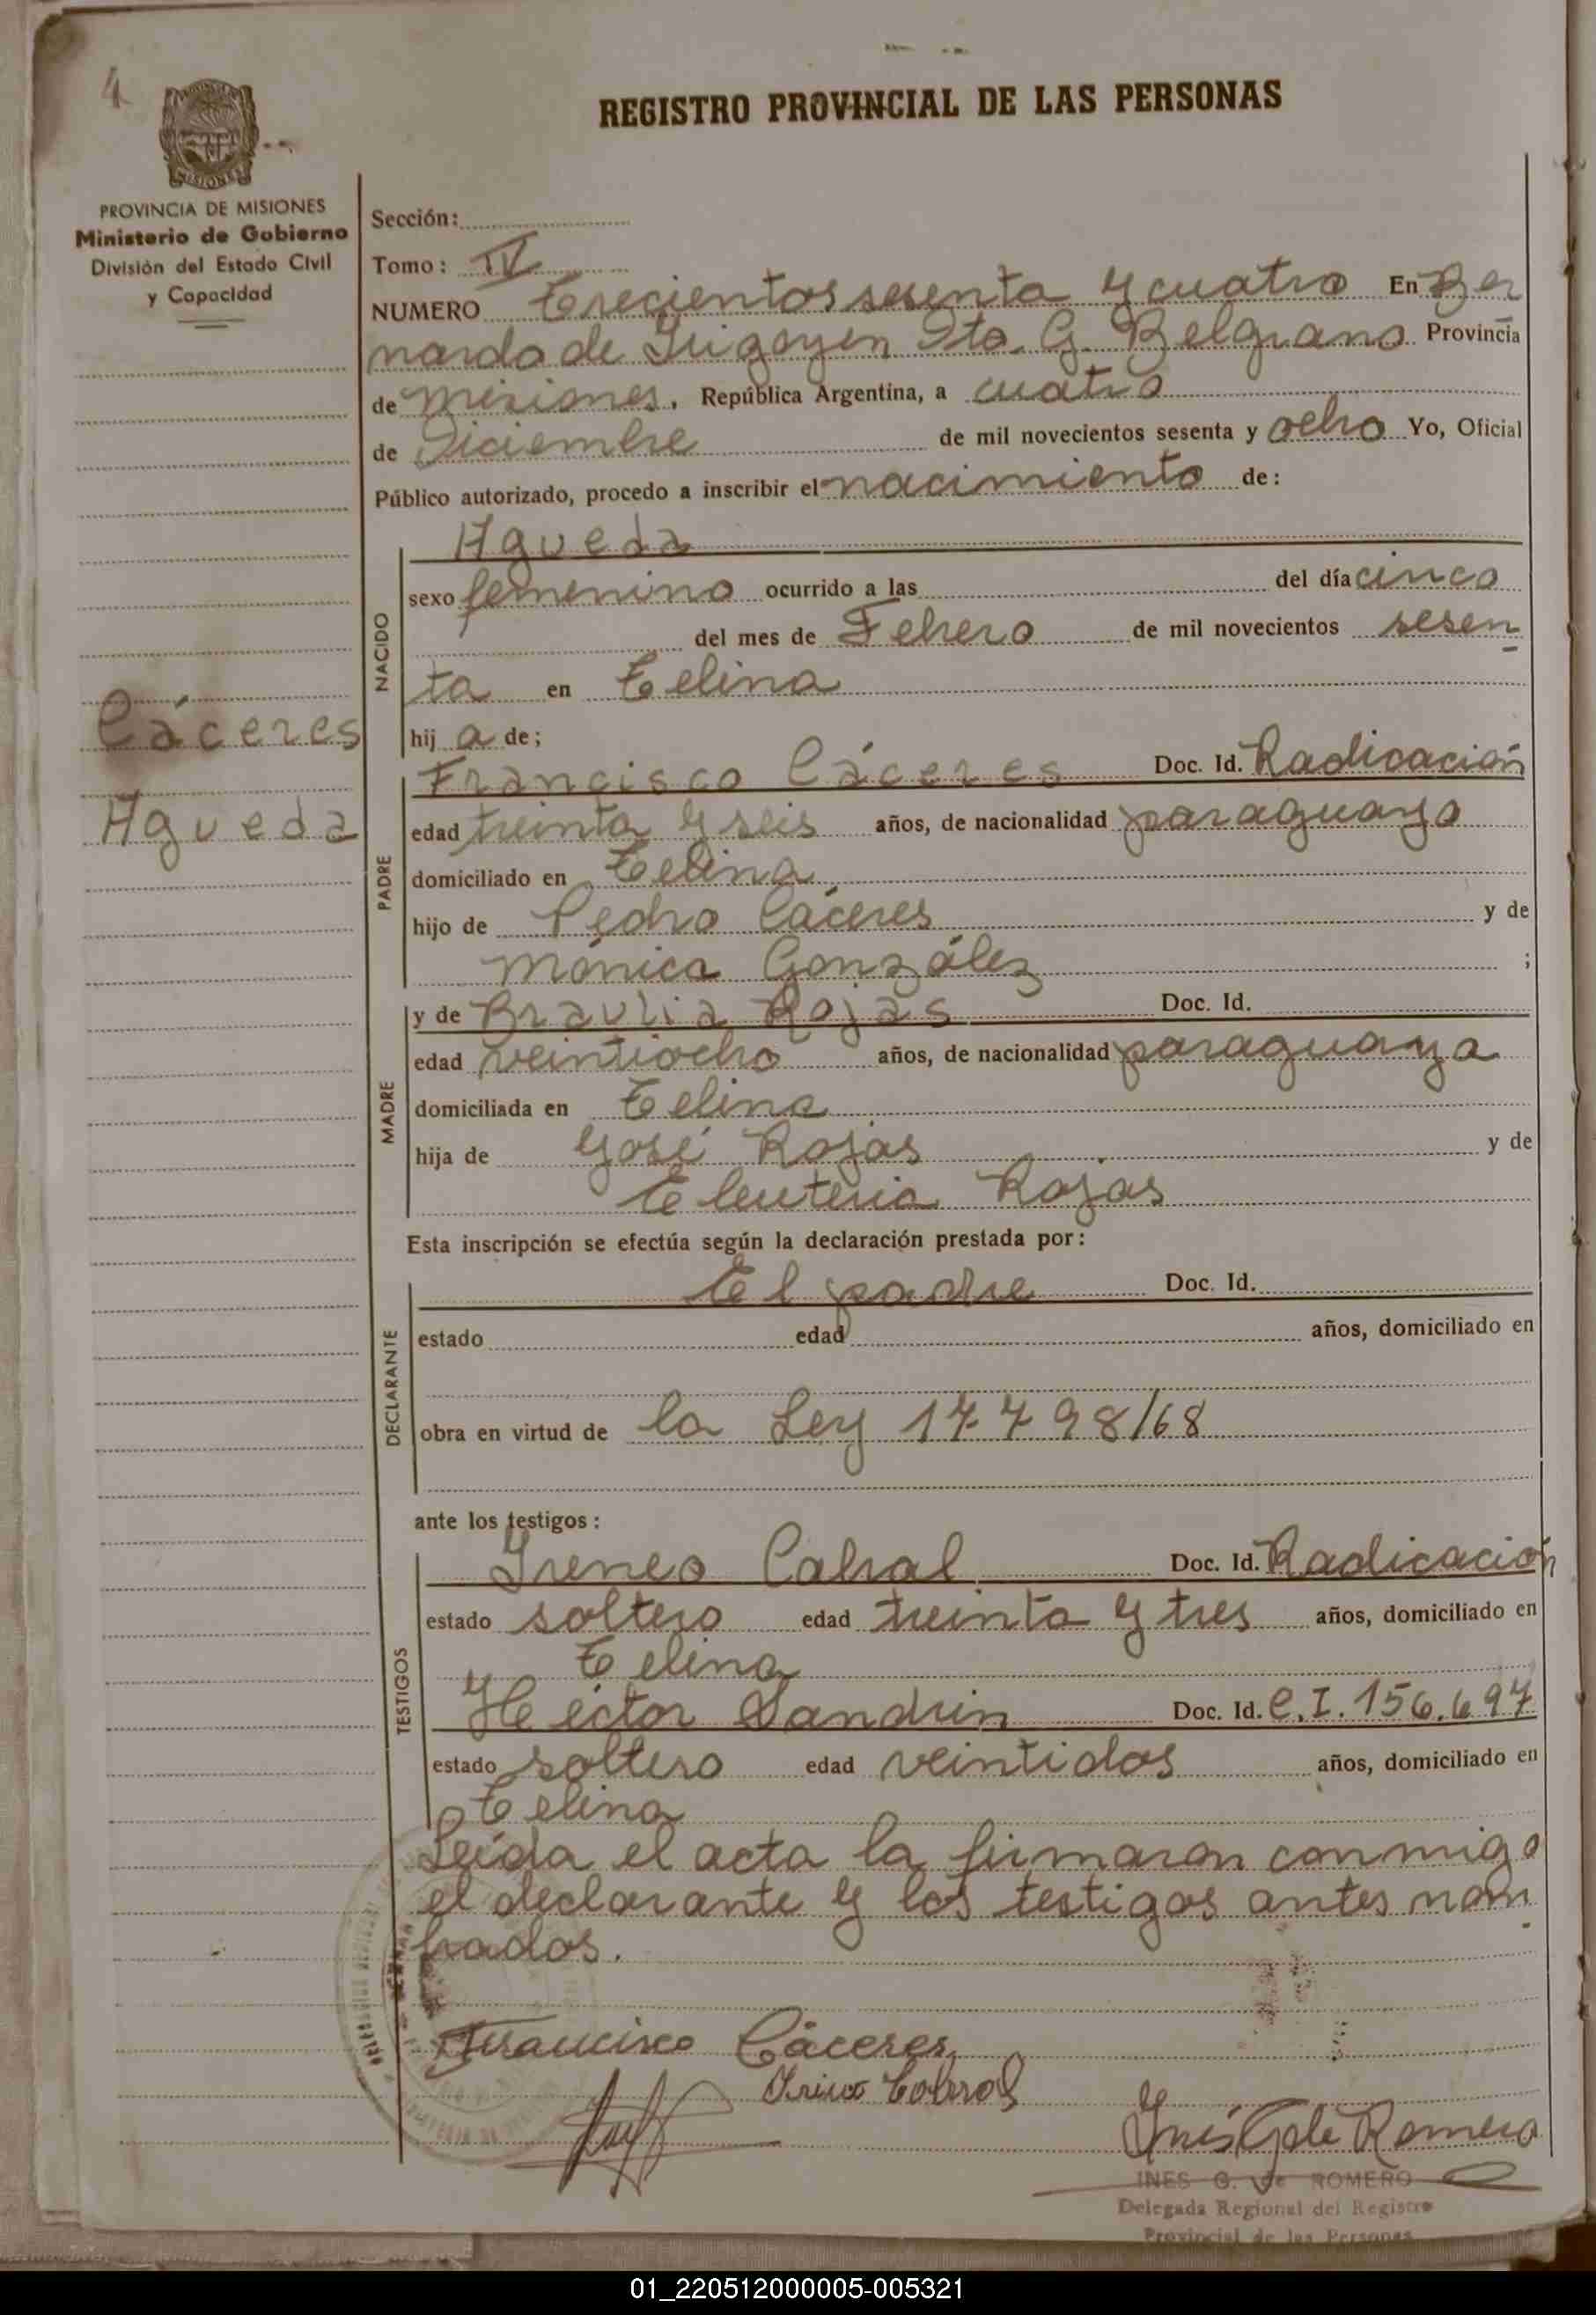 4
REGISTRO PROVINCIAL DE LAS PERSONAS
MISIONES
PROVINCIA DE MISIONES
Ministerio de Gobierno
División del Estado Civil
y Capacidad
Sección:
Tomo: IV
NUMERO Trecientos sesenta y cuatro En Ber
nardo de Irigoyen Dto. G. Belgrano Provincia
de Misiones, República Argentina, a cuatro
de Diciembre de mil novecientos sesenta y ocho Yo, Oficial
Público autorizado, procedo a inscribir el nacimiento de:
NACIDO
Agueda
sexo femenino ocurrido a las del día cinco
del mes de Febrero de mil novecientos sesen
ta en Celina
hij a de;
Cáceres
Agueda
PADRE
Francisco Cáceres Doc. Id. Radicación
edad treinta y seis años, de nacionalidad paraguayo
domiciliado en Celina
hijo de Pedro Cáceres y de
Mónica González ;
MADRE
y de Braulia Rojas Doc. Id.
edad veintiocho años, de nacionalidad paraguaya
domiciliada en Celina
hija de José Rojas y de
Eleuteria Rojas
Esta inscripción se efectúa según la declaración prestada por:
DECLARANTE
El padre Doc. Id.
estado edad años, domiciliado en
obra en virtud de la Ley 17798/68
ante los testigos:
TESTIGOS
Ireneo Cabral Doc. Id. Radicación
estado soltero edad treinta y tres años, domiciliado en
Celina
Héctor Sandrin Doc. Id. C.I. 156.697
estado soltero edad veintidos años, domiciliado en
Celina
Leída el acta la firmaron conmigo
el declarante y los testigos antes nom
brados.
Francisco Cáceres
Irineo Cabral
Inés G de Romero
INES G. de ROMERO
Delegada Regional del Registro
Provincial de las Personas
01_220512000005-005321